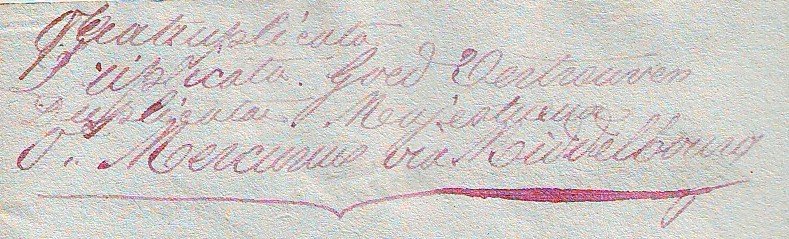 Quatruplicata
Triplicata. Goed Vertrouwen
Duplicata Majestuena
P. Mercurius via Middelbourg